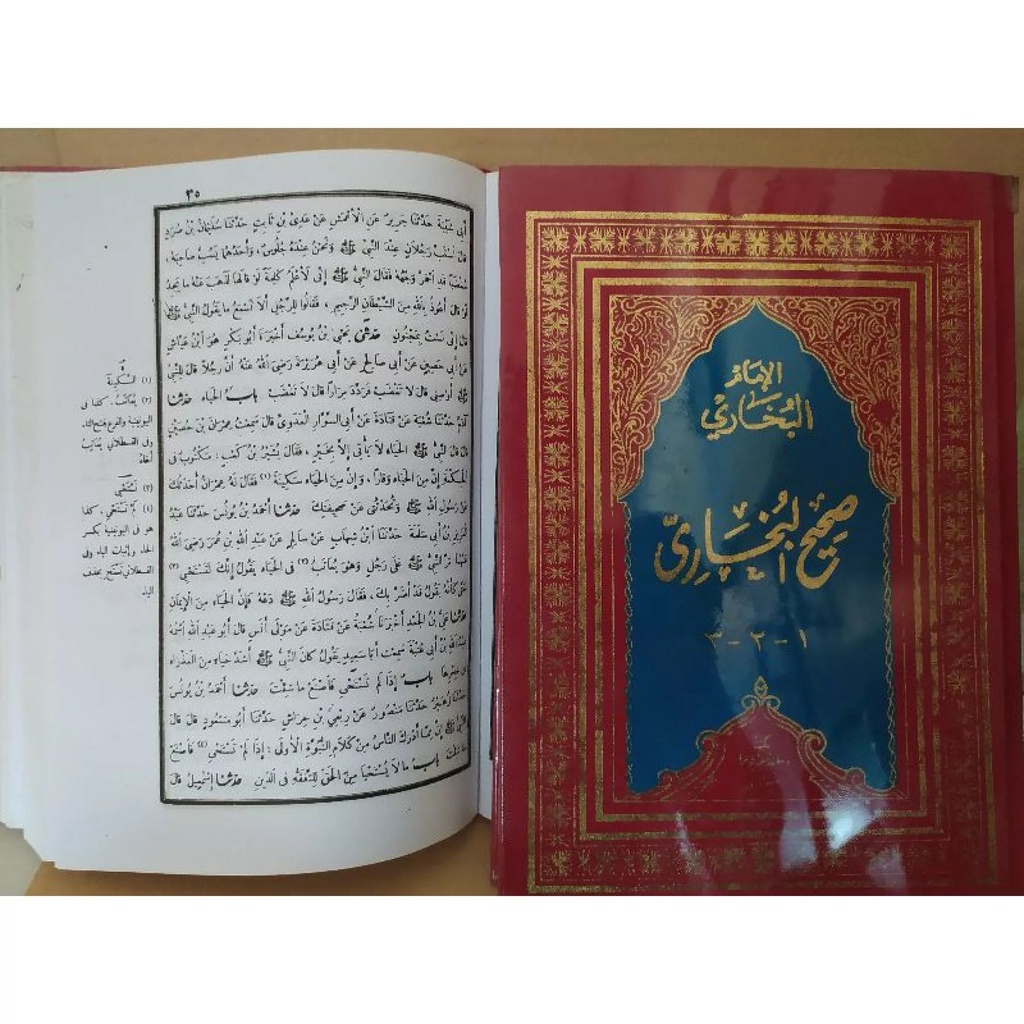 ٣٥
أبي شيبة حدثنا جرير عن الأعمش عن عدي بن ثابت حدثنا سليمان بن صرد
قال استب رجلان عند النبي ﷺ ونحن عنده جلوس، وأحدهما يسب صاحبه،
مغضبا قد احمر وجهه فقال النبي ﷺ إني لأعلم كلمة لو قالها لذهب عنه ما يجد
لو قال أعوذ بالله من الشيطان الرجيم، فقالوا للرجل ألا تسمع ما يقول النبي ﷺ
قال إني لست بمجنون حدثني يحيى بن يوسف أخبرنا أبو بكر هو ابن عياش
عن أبي حصين عن أبي صالح عن أبي هريرة رضي الله عنه أن رجلا قال للنبي
ﷺ أوصني قال لا تغضب فردد مرارا قال لا تغضب باب الحياء حدثنا
آدم حدثنا شعبة عن قتادة عن أبي السوار العدوي قال سمعت عمران بن حصين
قال قال النبي ﷺ الحياء لا يأتي إلا بخير، فقال بشير بن كعب: مكتوب في
الحكمة إن من الحياء وقارا، وإن من الحياء سكينة (١) فقال له عمران أحدثك
عن رسول الله ﷺ وتحدثني عن صحيفتك حدثنا أحمد بن يونس حدثنا عبد
العزيز بن أبي سلمة حدثنا ابن شهاب عن سالم عن عبد الله بن عمر رضي الله
عنهما مر النبي ﷺ على رجل وهو يعاتب (٢) في الحياء يقول إنك لتستحيي (٣)
حتى كأنه يقول قد أضر بك، فقال رسول الله ﷺ دعه فإن الحياء من الإيمان
حدثنا علي بن الجعد أخبرنا شعبة عن قتادة عن مولى أنس قال أبو عبد الله اسمه
عبد الله بن أبي عتبة سمعت أبا سعيد يقول كان النبي ﷺ أشد حياء من العذراء
في خدرها باب إذا لم تستحيي فاصنع ما شئت حدثنا أحمد بن يونس
حدثنا زهير حدثنا منصور عن ربعي بن حراش حدثنا أبو مسعود قال قال
النبي ﷺ إن مما أدرك الناس من كلام النبوة الأولى: إذا لم تستحيي (٤) فاصنع
ما شئت باب ما لا يستحيا من الحق للتفقه في الدين حدثنا إسمعيل قال
(١) السكينة
(٢) يعاتب. كذا في
اليونينية والفرع بفتح التاء
وفي القسطلاني يعاتب
أخاه
(٣) تستحيي
(٤) لم تستحيي. كذا
هو في اليونينية بكسر
الحاء وإثبات الياء وفي
القسطلاني تستح بحذف
الياء
الإمام
البخاري
صحيح البخاري
١-٢-٣